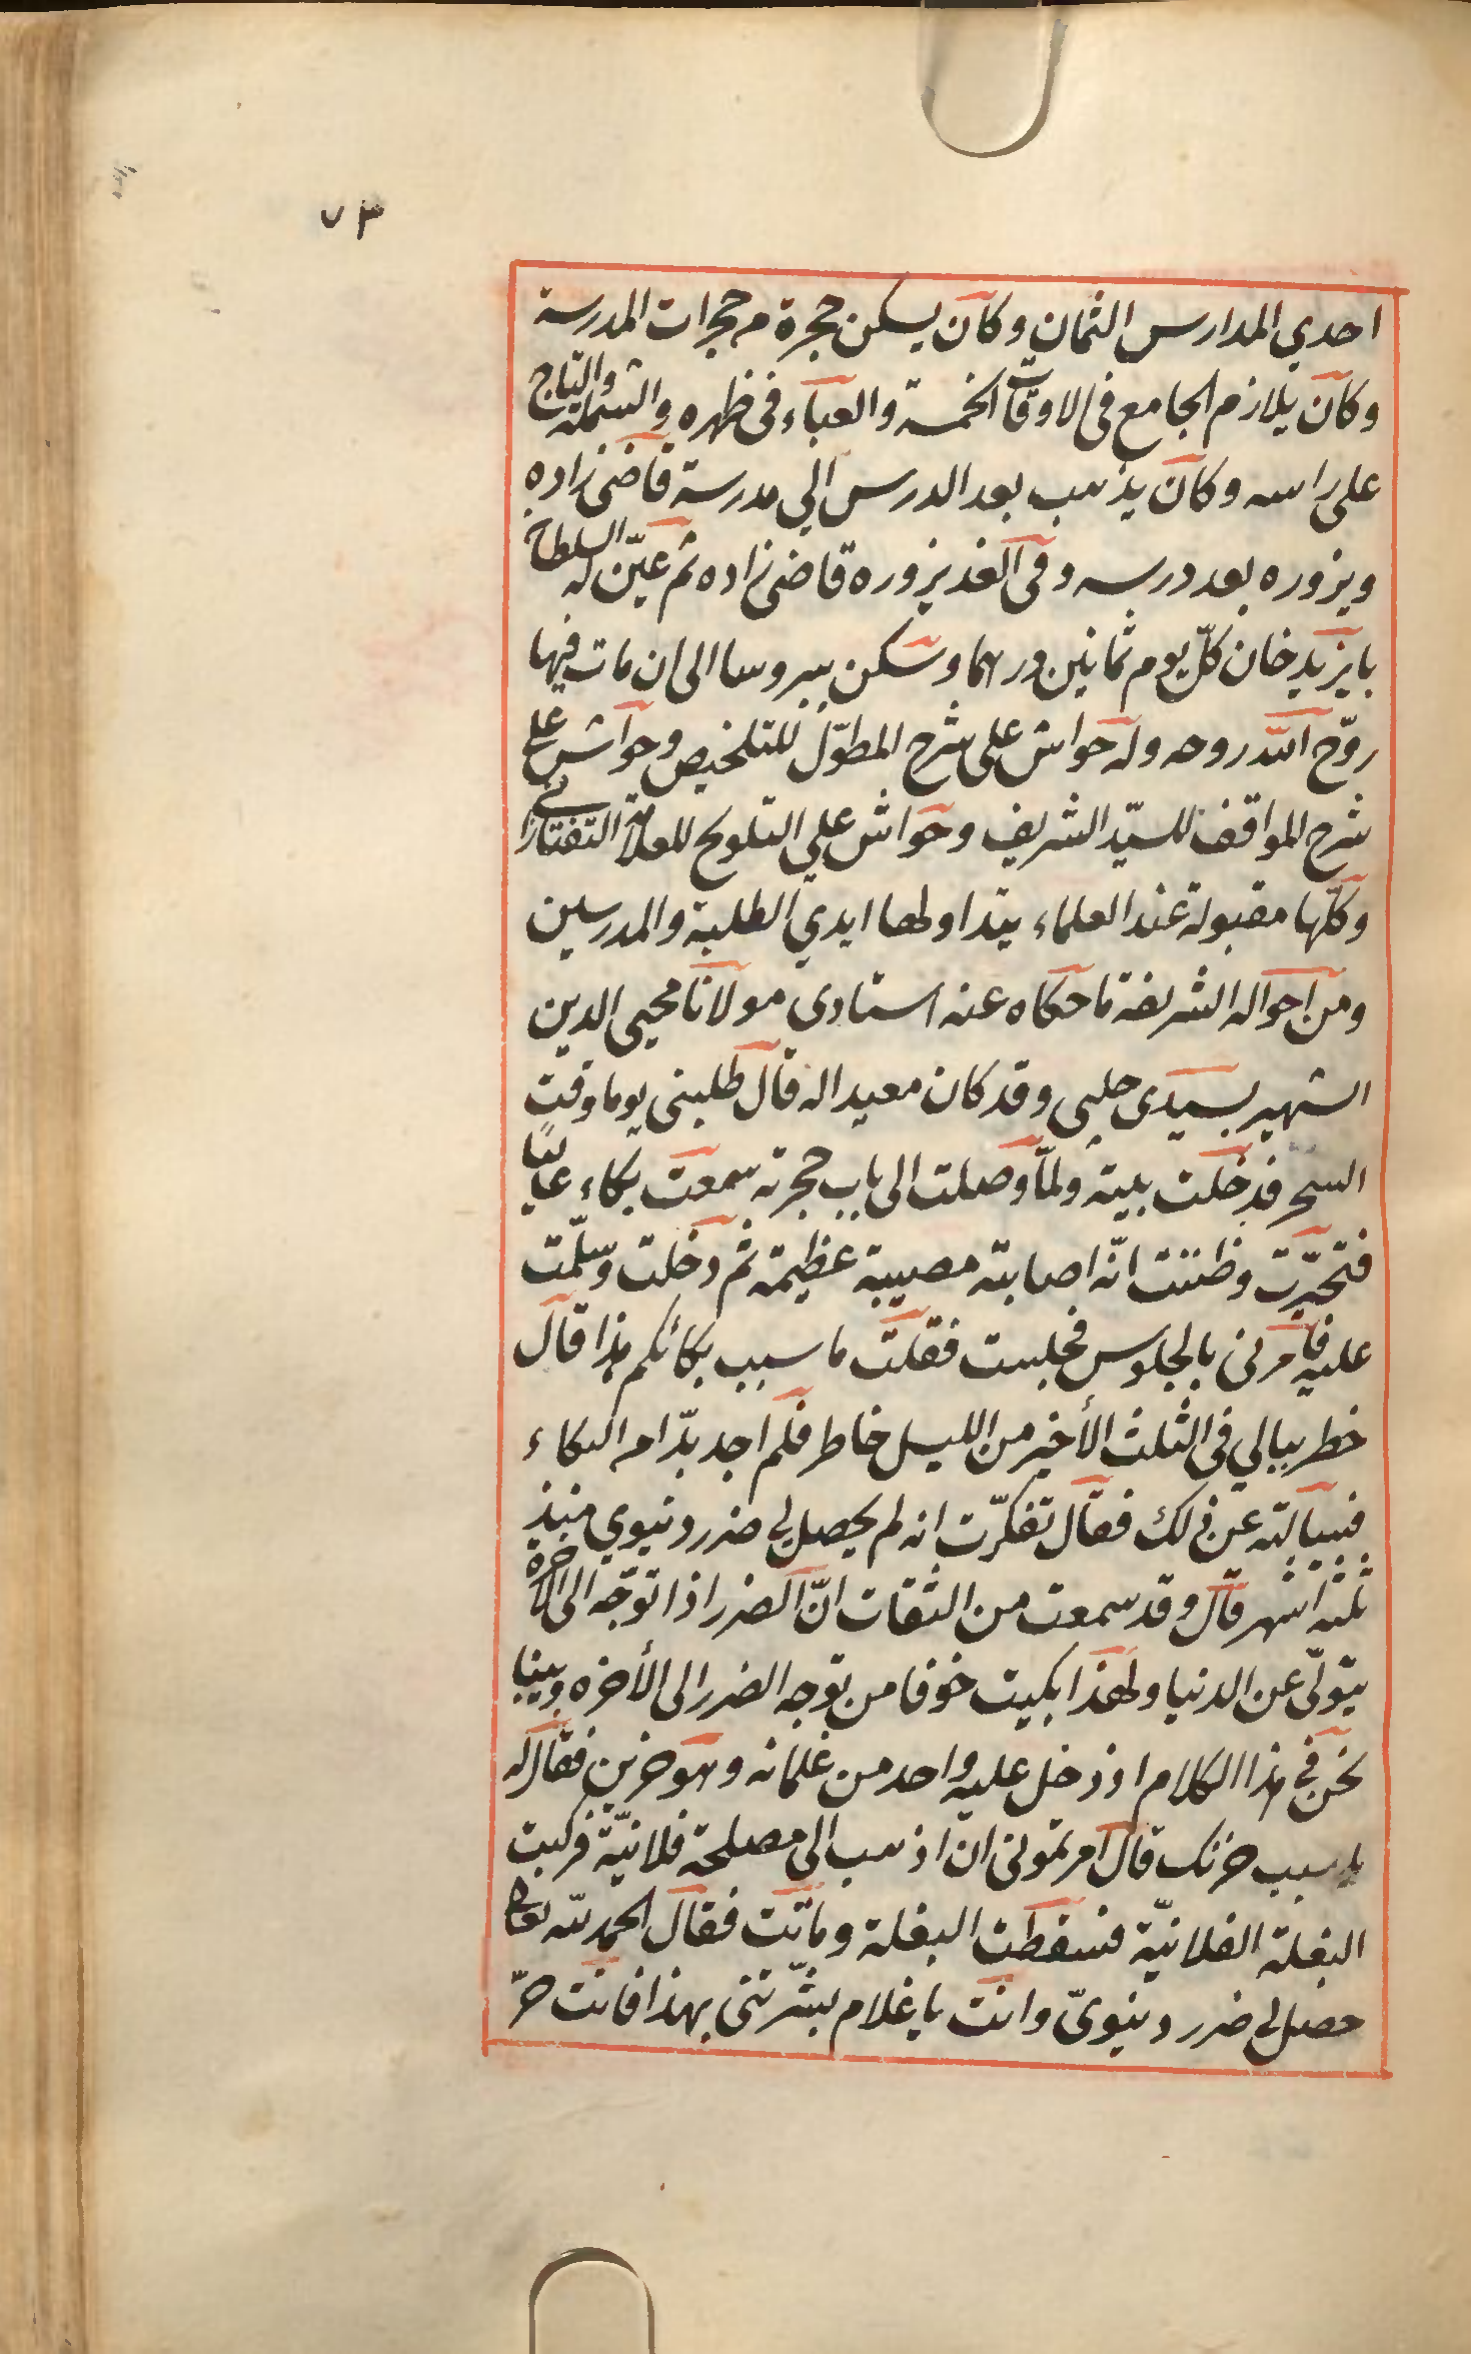 ٧٣
احدي المدارس الثمان وكان يسكن حجرة من حجرات المدرسة
وكان يلازم الجامع فى الاوقات الخمسة والعباء فى ظهره والشملة والتاج
على راسه وكان يذهب بعد الدرس الي مدرسة قاضى زاده
ويزوره بعد درسه وفى الغد يزوره قاضى زاده ثم عيّن له السلطان
بايزيد خان كلّ يوم ثمانين درهما وسكن ببروسا الى ان مات فيها
روّح الله روحه وله حواش على شرح المطوّل للتلخيص وحواش على
شرح المواقف للسيّد الشريف وحواش علي التلويح للعلامة التفتازانى
وكلّها مقبولة عند العلماء يتداولها ايدي الطلبة والمدرسين
ومن احواله الشريفة ما حكاه عنه استادي مولانا محيى الدين
الشهير بسيدى چلبى وقد كان معيدا له قال طلبنى يوما وقت
السحر فدخلت بيته ولمّا وصلت الى باب حجرته سمعت بكاء عاليًا
فتحيّرت وظننت انّه اصابته مصيبة عظيمة ثم دخلت وسلّمت
عليه فامرنى بالجلوس فجلست فقلت ما سبب بكائكم هذا قال
خطر ببالي فى الثلث الأخير من الليل خاطر فلم اجد بدّا من البكاء
فسالته عن ذلك فقال تفكرّت انه لم يحصل لى ضرر دنيوي منذ
ثلثة اشهر قال وقد سمعت من الثقات انّ الضرر اذا توجّه الى الآخرة
يتولّى عن الدنيا ولهذا بكيت خوفا من توجه الضرر الى الأخره وبينا
نحن فى هذا الكلام اذ دخل عليه واحد من غلمانه وهو حزين فقال له
ما سبب حزنك قال امرتمونى ان اذهب الى مصلحة فلانيّة فركبت
البغلة الفلانيّة فسقطت البغلة وماتت فقال الحمد لله تعالى
حصل لى ضرر دنيوىّ وانت يا غلام بشّرتنى بهذا فانت حرّ